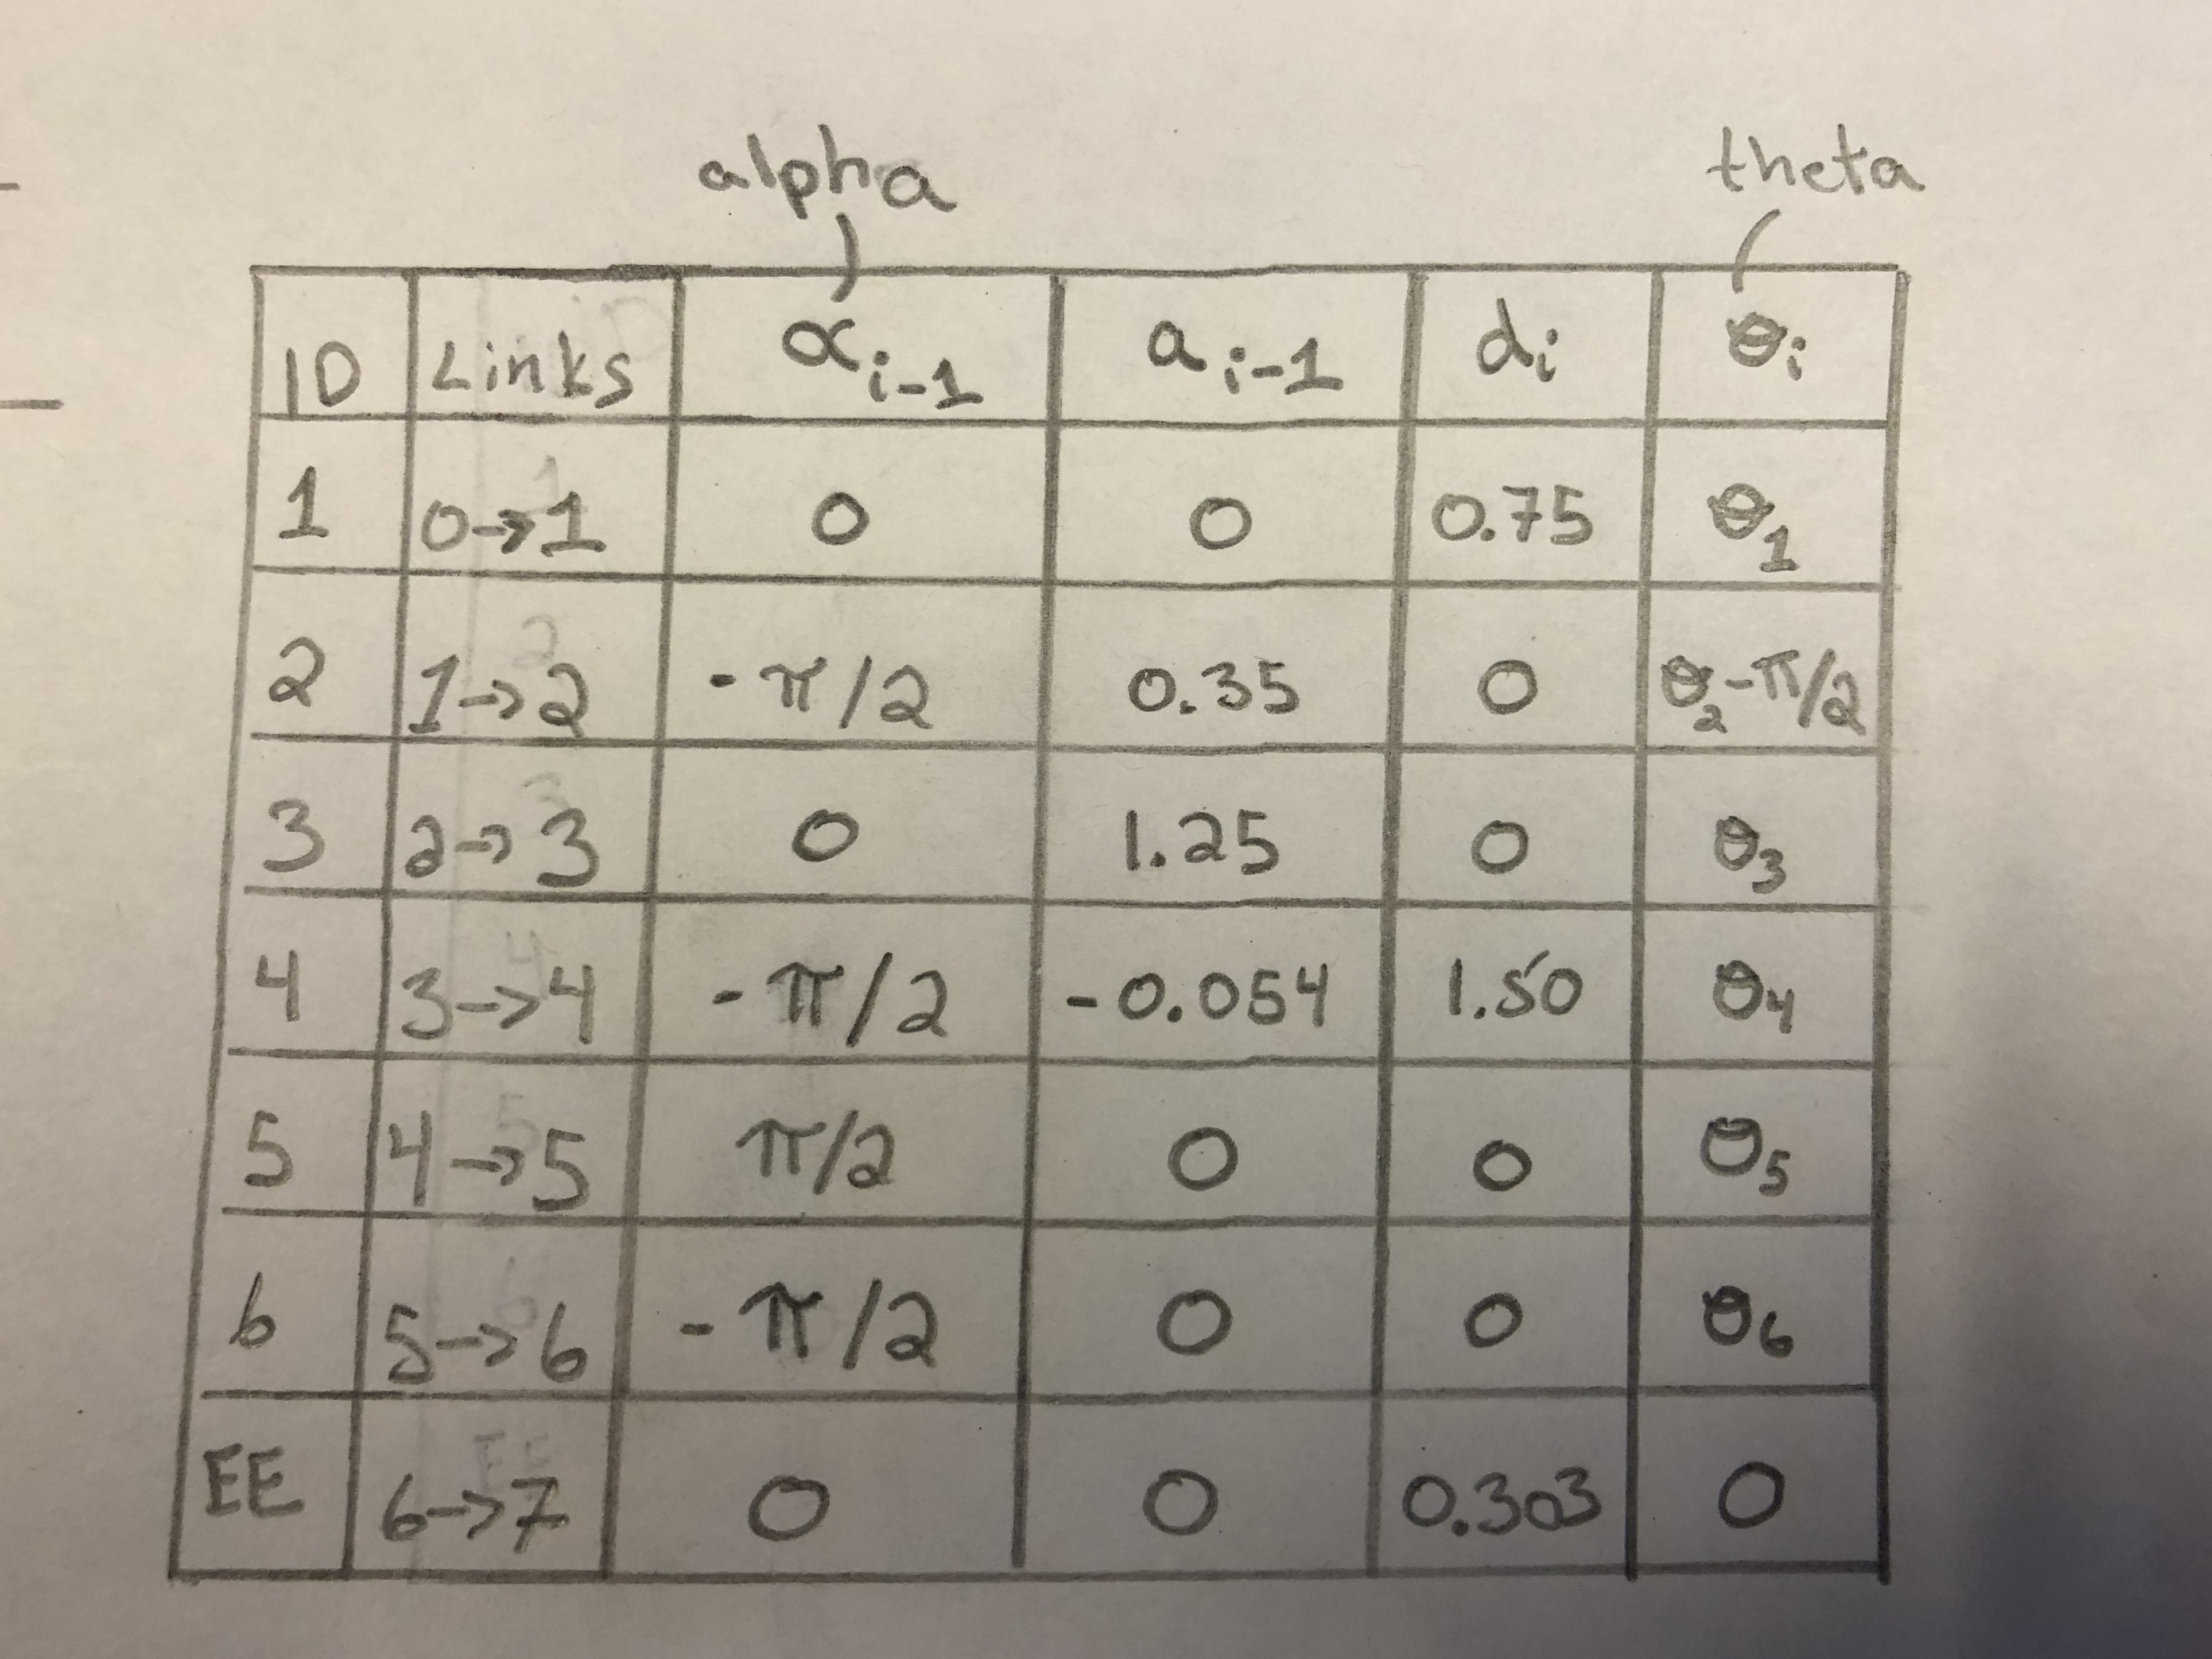 alpha theta
ID Links α i-1 a i-1 di θi
1 0→1 0 0 0.75 θ1
2 1→2 -π/2 0.35 0 θ2-π/2
3 2→3 0 1.25 0 θ3
4 3→4 -π/2 -0.054 1.50 θ4
5 4→5 π/2 0 0 θ5
6 5→6 -π/2 0 0 θ6
EE 6→7 0 0 0.303 0